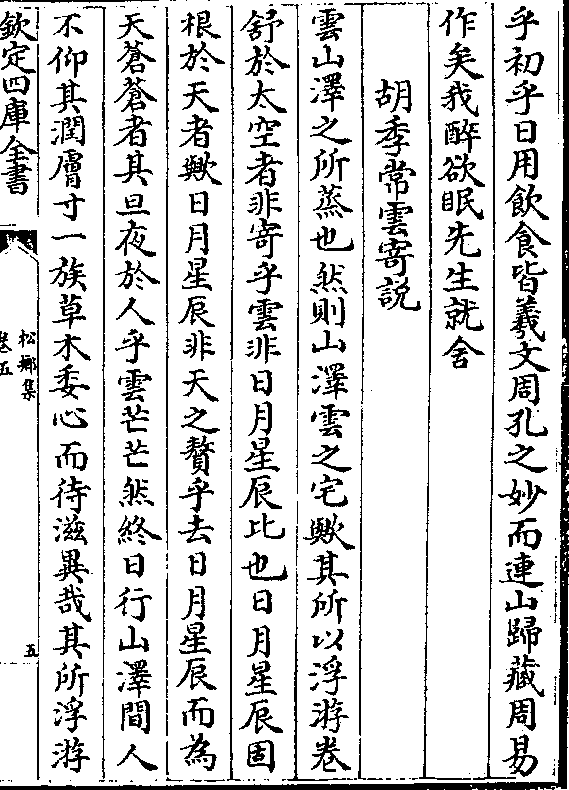 乎初乎日用飲食皆羲文周孔之妙而連山歸藏周易
作矣我醉欲眠先生就舍
胡季常雲寄説
雲山澤之所蒸也然則山澤雲之宅歟其所以浮游卷
舒於太空者非寄乎雲非日月星辰比也日月星辰固
根於天者歟日月星辰非天之贅乎去日月星辰而為
天蒼蒼者其旦夜於人乎雲芒芒然終日行山澤間人
不仰其潤膚寸一族草木委心而待滋異哉其所浮游
欽定四庫全書
松鄉集
卷五
五